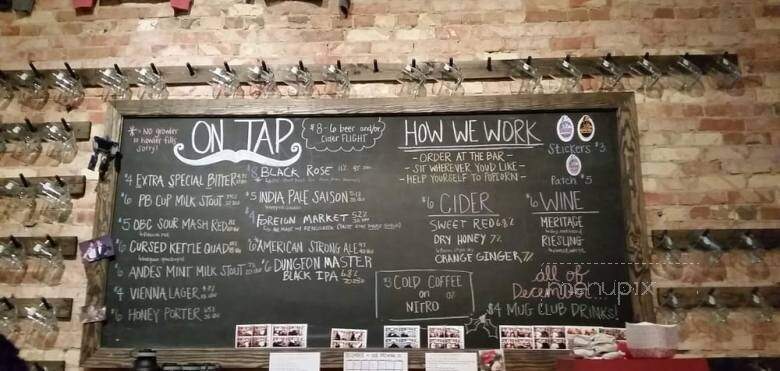 * = NO growler
or howler fills
Sorry!
ON TAP
$8 - 6 beer and/or
Cider FLIGHT
$4 EXTRA SPECIAL BITTER
$6 PB CUP MILK STOUT
$5 OBC SOUR MASH RED
$6 CURSED KETTLE QUAD
$6 ANDES MINT MILK STOUT
$4 VIENNA LAGER
$6 HONEY PORTER
$8 BLACK ROSE
$5 INDIA PALE SAISON
$4 FOREIGN MARKET 5.2%
$6 AMERICAN STRONG ALE
$6 DUNGEON MASTER
BLACK IPA 6.8%
HOW WE WORK
- ORDER AT THE BAR -
- SIT WHEREVER YOU'D LIKE -
- HELP YOURSELF TO POPCORN -
$6 CIDER
SWEET RED 6.8%
DRY HONEY 7%
ORANGE GINGER 7%
$3 COLD COFFEE
on
NITRO
Stickers $3
Patch $5
$6 WINE
MERITAGE
RIESLING
all of
December...
$4 MUG CLUB DRINKS!
menupix